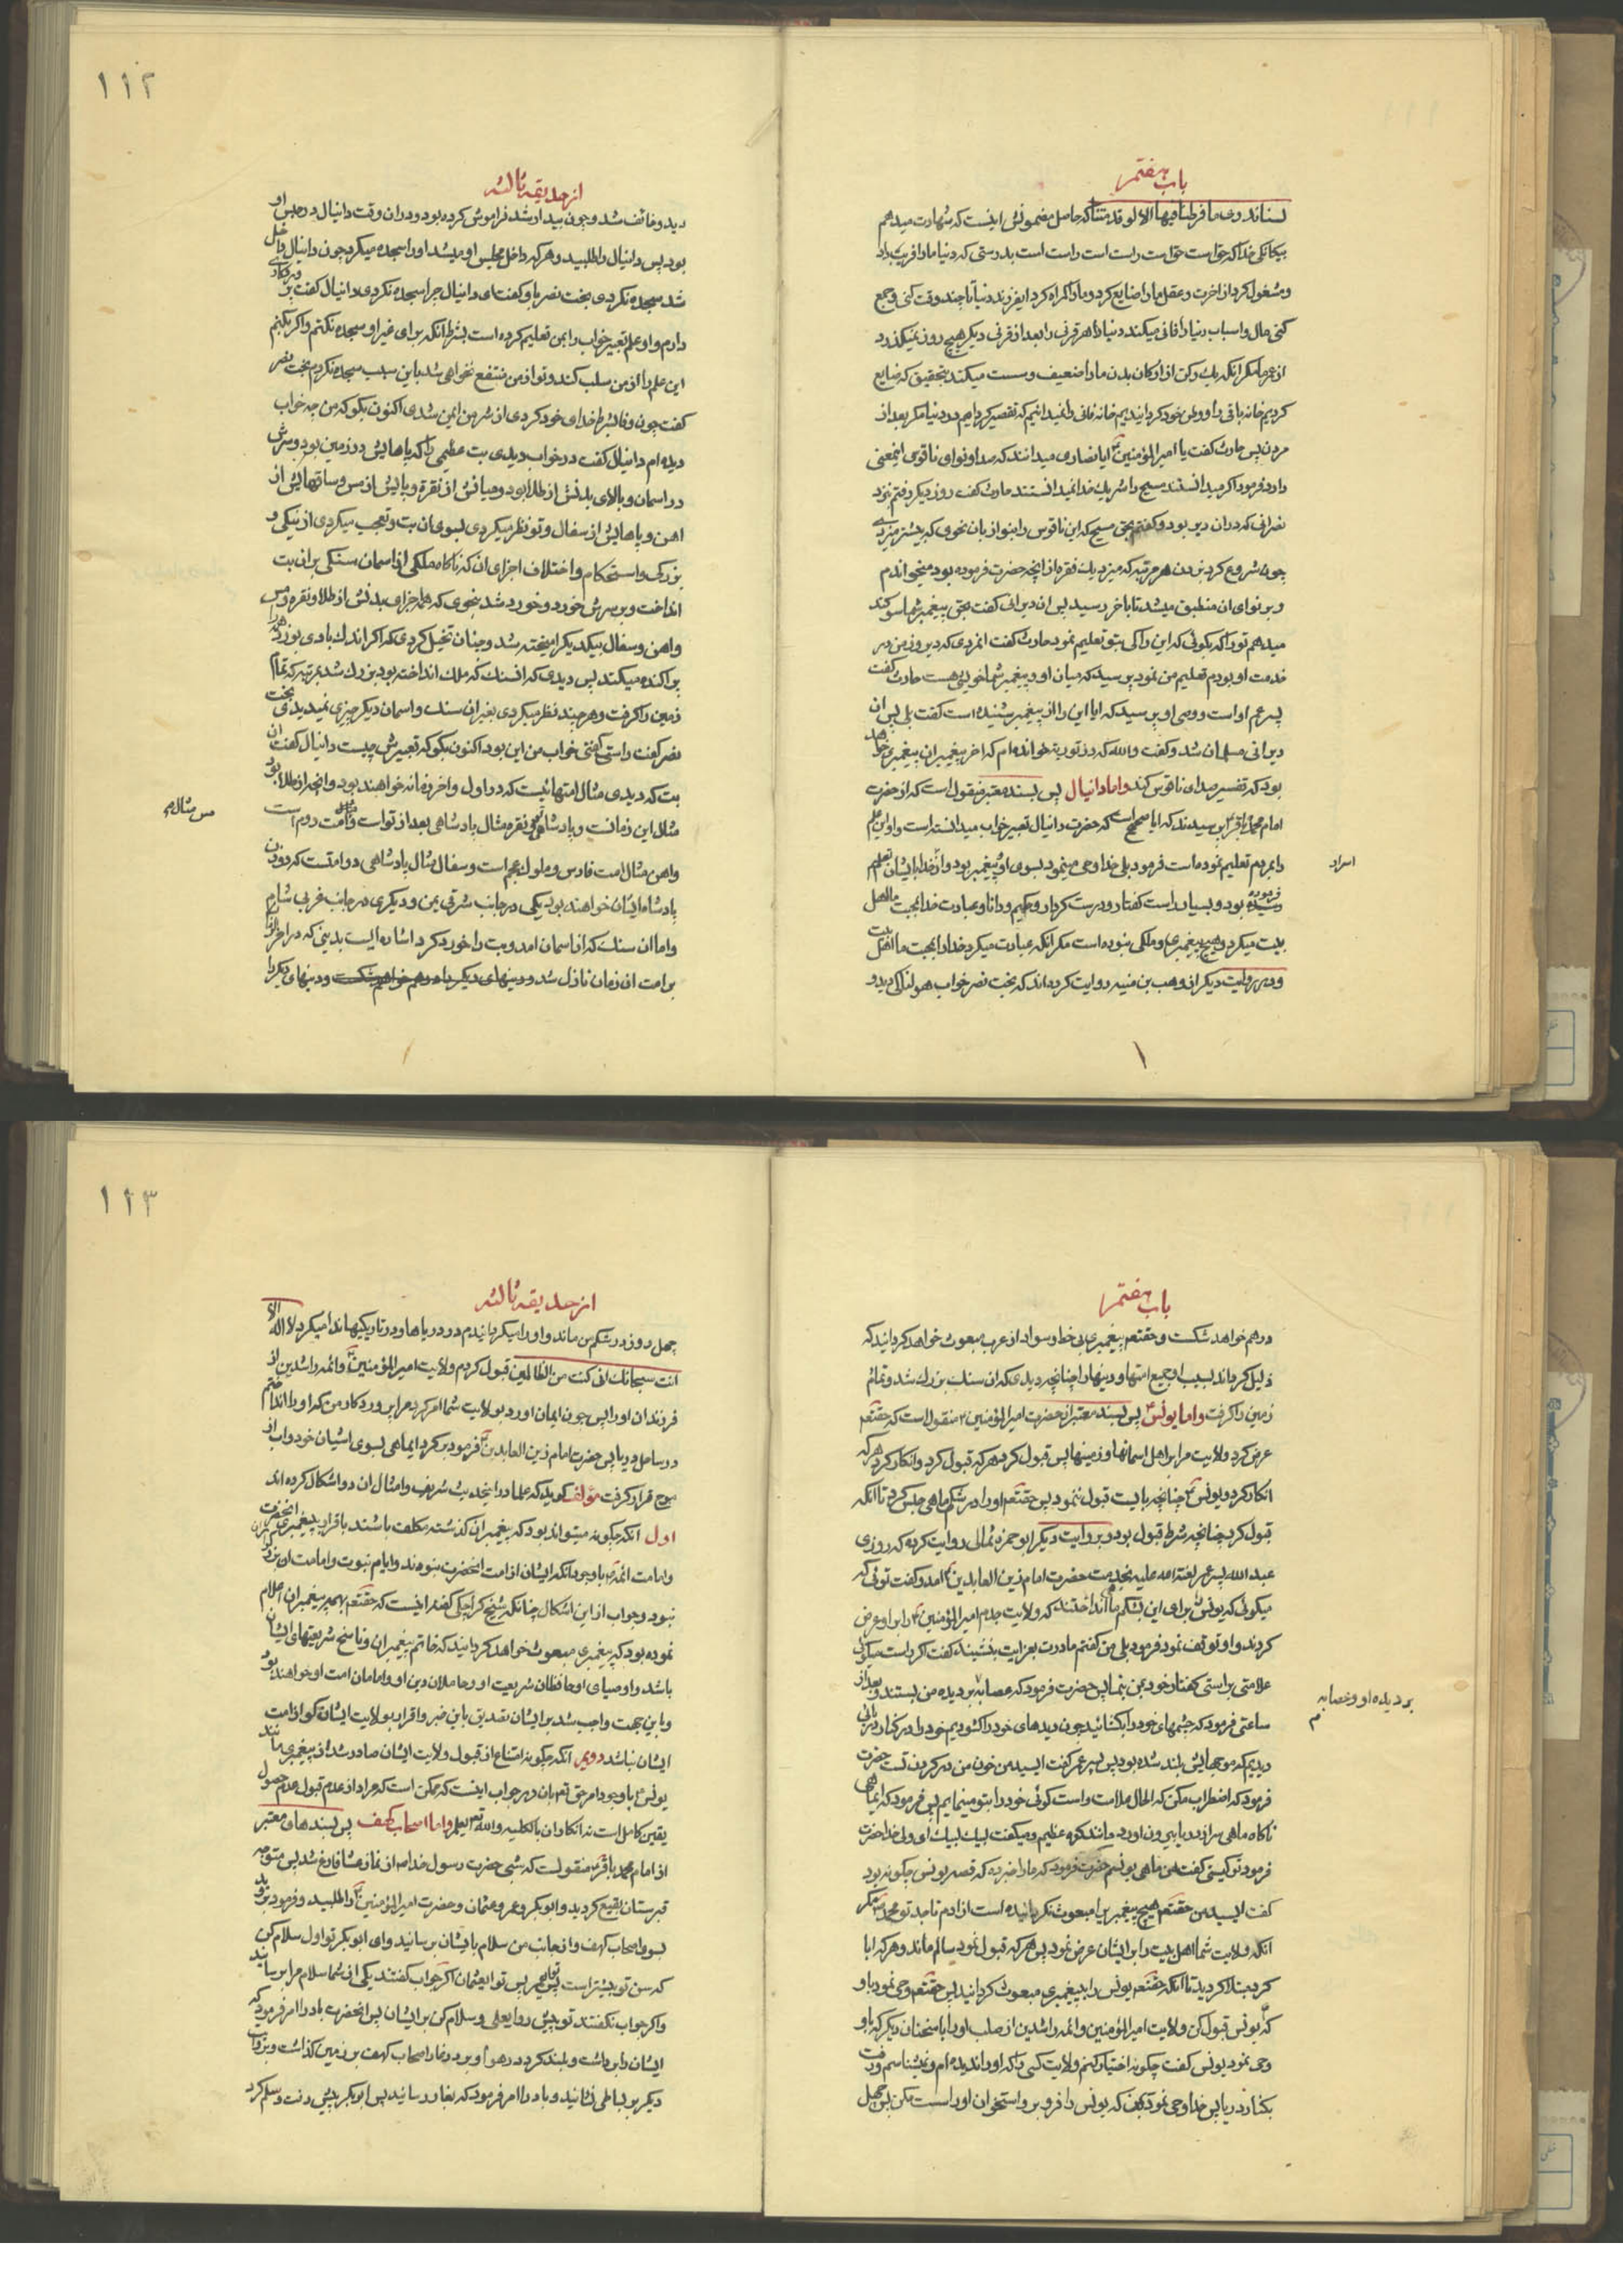 باب هفتم
لسناندری ما فرطنا فیها الا لو قدمتنا که حاصل مضمونش اینست که شهادت میدهم
بیکانکی خدا که حق است حق است راست است راست است بدرستی که دنیا ما را فریب داد
و مشغول کرد از اخرت و عقل ما را ضایع کرد و ما را کمراه کرد ایفرزند دنیا تا چند وقت کنی و جمع
کنی مال و اسباب دنیا را فانی میکند دنیا را هر قرنی را بعد از قرنی دیکر هیچ روز نمیکذرد
از عمر ما مکر انکه یک رکن از ارکان بدن ما را ضعیف و سست میکند بتحقیق که ضایع
کردیم خانه باقی را و وطن خود کردانیدیم خانه فانی را نمیدانیم که تقصیر کرده ایم در دنیا مکر بعد از
مردن پس حارث کفت یا امیر المؤمنین ایا نصاری میدانند که صدا و نوای ناقوس اینمعنی
دارد فرمود اکر میدانستند مسیح را شریک خدا نمیدانستند حارث کفت روز دیکر رفتم نزد
نصرانی که در ان دیر بود و کفتم بحق مسیح که این ناقوس را بنواز بان نحوی که پیشتر میزدی
چون شروع کرد بزدن هر مرتبه که میزد یک فقره از انچه حضرت فرموده بود میخواندم
و بر نوای ان منطبق میشد تا باخر رسید پس ان دیرانی کفت بحق پیغمبر شما سوکند
میدهم تو را که بکوئی که این را کی بتو تعلیم نمود حارث کفت انمردی که دیروز من در
خدمت او بودم تعلیم من نمود پرسید که میان او و پیغمبر شما خویشی هست حارث کفت
پسر عم او است و وصی او پرسید که ایا این را از پیغمبر شنیده است کفت بلی پس ان
دیرانی مسلمان شد و کفت والله که در توریة خوانده ام که اخر پیغمبران پیغمبری خواهد
بود که تفسیر صدای ناقوس کند واما دانیال پس بسند معتبر منقول است که از حضرت
امام محمد باقر پرسیدند که ایا صحیح است که حضرت دانیال تعبیر خواب میدانسته است و او این علم
را بمردم تعلیم نموده است فرمود بلی خدا وحی مینمود بسوی او و پیغمبر بود و از خدا بایشان تعلیم
اسراد
فرموده بود و بسیار راست کفتار و درست کردار و حکیم و دانا و عبادت خدا بمحبت ما اهل
بیت میکرد و هیچ پیغمبری و ملکی نبوده است مکر انکه عبادت میکرد خدا را بمحبت ما اهل بیت
و در روایت دیکر از وهب بن منبه روایت کرده اند که بخت نصر خواب هولناکی دید و
۱۱۲
از حدیقه ثالثه
دید و خائف شد و چون بیدار شد فراموش کرده بود و در ان وقت دانیال در حبس او
بود پس دانیال را طلبید و هر که داخل مجلس او میشد او را سجده میکرد چون دانیال داخل
شد سجده نکرد بخت نصر باو کفت ای دانیال چرا سجده نکردی دانیال کفت پروردکاری
دارم و او علم تعبیر خواب را بمن تعلیم کرده است بشرط انکه برای غیر او سجده نکنم و اکر بکنم
این علم را از من سلب کند و تو از من منتفع نخواهی شد باین سبب سجده نکردم بخت نصر
کفت چون وفا بشرط خدای خود کردی از شر من ایمن شدی اکنون بکو که من چه خواب
دیده ام دانیال کفت در خواب دیدی بت عظیمی را که پاهایش در زمین بود و سرش
در اسمان و بالای بدنش از طلا بود و میانش از نقره و پایش از مس و ساقهایش از
اهن و پاهایش از سفال و تو نظر میکردی بسوی ان بت و تعجب میکردی از نیکی و
بزرکی و استحکام و اختلاف اجزای ان که ناکاه ملکی از اسمان سنکی بر ان بت
انداخت و بر سرش خورد و خورد شد بنحوی که همه اجزای بدنش از طلا و نقره و مس
و اهن و سفال بیکدیکر امیخته شد و چنان تخیل کردی که اکر اندک بادی بوزد همه را
پراکنده میکند پس دیدی که ان سنک که ملک انداخته بود بزرک شد بمرتبه که تمام
زمین را کرفت و هر چند نظر میکردی بغیر ان سنک و اسمان دیکر چیزی نمیدیدی بخت
نصر کفت راست کفتی خواب من این بود اکنون بکو که تعبیرش چیست دانیال کفت ان
بت که دیدی مثال امتهائیست که در اول و اخر زمانه خواهند بود و انچه از طلا بود
مثال این زمانست و پادشاهی تو و نقره مثال پادشاهی بعد از تو است و امت روم است
مس مثال م
و اهن مثال امت فارس و ملوک عجم است و سفال مثال پادشاهی دو امتست که دو زن
پادشاه ایشان خواهند بود یکی در جانب شرقی یمن و دیکری در جانب غربی شام
و اما ان سنک که از اسمان امد و بت را خورد کرد اشاره ایست بدینی که در اخر الزمان
بر امت ان زمان نازل شد و دینهای دیکر را در هم خواهد شکست و دینهای دیکر را
باب هفتم
در هم خواهد شکست و حقتعم پیغمبری بی خط و سواد از عرب مبعوث خواهد کردانید که
ذلیل کرداند بسبب او جمیع امتها و دینها را چنانچه دیدی که ان سنک بزرک شد و تمام
زمین را کرفت واما یونس پس بسند معتبر از حضرت امیر المؤمنین منقول است که حقتعم
عرض کرد ولایت مرا بر اهل اسمانها و زمینها پس قبول کرد هر که قبول کرد و انکار کرد هر که
انکار کرد و یونس چنانچه بایست قبول ننمود پس حقتعم او را در شکم ماهی حبس کرد تا انکه
قبول کرد چنانچه شرط قبول بود و بروایت دیکر ابو حمزه ثمالی روایت کرده که روزی
عبد الله پسر عمر لعنة الله علیه بخدمت حضرت امام زین العابدین امد و کفت توئی که
میکوئی که یونس را برای این بشکم ماهی انداختند که ولایت جدم امیر المؤمنین را بر او عرض
کردند و او توقف نمود فرمود بلی من کفتم مادرت بعزایت بنشیند کفت اکر راست میکوئی
علامتی بر راستی کفتار خود بمن بنما پس حضرت فرمود که عصابه بر دیده من بستند و بعد از
بر دیده او و عصابه م
ساعتی فرمود که چشمهای خود را بکشائید چون دیدهای خود را کشودیم خود را در کنار دریائی
دیدیم که موجهایش بلند شده بود پس پسر عمر کفت ای سید من خون من در کردن تست حضرت
فرمود که اضطراب مکن که الحال علامت راست کوئی خود را بتو مینمایم پس فرمود که ای ماهی
ناکاه ماهی سر از دریا بیرون اورد مانند کوه عظیم و میکفت لبیک لبیک ای ولی خدا حضرت
فرمود تو کیستی کفت من ماهی یونسم حضرت فرمود که ما را خبر ده که قصه یونس چکونه بود
کفت ای سید من حقتعم هیچ پیغمبر را مبعوث نکردانیده است از ادم تا جد تو محمد مکر
انکه ولایت شما اهل بیت را بر ایشان عرض نمود پس هر که قبول نمود سالم ماند و هر که ابا
کرد مبتلا کردید تا انکه حقتعم یونس را به پیغمبری مبعوث کردانید پس حقتعم وحی نمود باو
که یونس قبول کن ولایت امیر المؤمنین و ائمه راشدین از صلب او را با سخنان دیکر که باو
وحی نمود یونس کفت چکونه اختیار کنم ولایت کسی را که او را ندیده ام و نمیشناسم و رفت
بکنار دریا پس خدا وحی نمود بمن که یونس را فرو بر و استخوان او را سست مکن پس چهل
۱۱۳
از حدیقه ثالثه
چهل روز در شکم من ماند و او را میکردانیدم در دریاها و در تاریکیها ندا میکرد لا اله الا
انت سبحانک انی کنت من الظالمین قبول کردم ولایت امیر المؤمنین و ائمه راشدین از
فرزندان او را پس چون ایمان اورد بولایت شما امر کرد مرا پروردکار من که او را انداختم
در ساحل دریا پس حضرت امام زین العابدین فرمود برکرد ای ماهی بسوی اشیان خود و اب از
موج قرار کرفت مؤلف کوید که علما در اینحدیث شریف و امثال ان دو اشکال کرده اند
اول انکه چکونه میتواند بود که پیغمبران کذشته مکلف باشند باقرار پیغمبری انحضرت
و امامت ائمه با وجود انکه ایشان از امت انحضرت نبودند و ایام نبوت و امامت ان بزرکواران
نبود و جواب از این اشکال چنانکه شیخ کراجکی کفته اینست که حقتعم بهمه پیغمبران اعلام
نموده بود که پیغمبری مبعوث خواهد کردانید که خاتم پیغمبران و ناسخ شریعتهای ایشان
باشد و اوصیای او حافظان شریعت او و حاملان دین او و امامان امت او خواهند بود
و باین جهت واجب شد بر ایشان تصدیق باین خبر و اقرار بولایت ایشان کو از امت
ایشان نباشد دویم انکه چکونه امتناع از قبول ولایت ایشان صادر شد از پیغمبری مانند
یونس با وجود امر حق تع بان و جواب اینست که ممکن است که مراد از عدم قبول عدم حصول
یقین کامل است نه انکار ان بالکلیه والله تع یعلم واما اصحاب کهف پس بسندهای معتبر
از امام محمد باقر منقولست که شبی حضرت رسول خدا از نماز عشا فارغ شد پس متوجه
قبرستان بقیع کردید و ابو بکر و عمر و عثمان و حضرت امیر المؤمنین را طلبید و فرمود بروید
بسوی اصحاب کهف و از جانب من سلام بایشان برسانید و ای ابو بکر تو اول سلام کن
که سن تو بیشتر است پس تو ای عمر پس تو ای عثمان اکر جواب کفتند یکی از شما سلام مرا برسانید
و اکر جواب نکفتند تو پیش رو ای علی و سلام کن بر ایشان پس انحضرت باد را امر فرمود که
ایشان را برداشت و بلند کرد در هوا و بر در غار اصحاب کهف بر زمین کذاشت و بروایت
دیکر بر بساطی نشانید و باد را امر فرمود که بغار رسانید پس ابو بکر پیش رفت و سلم کرد